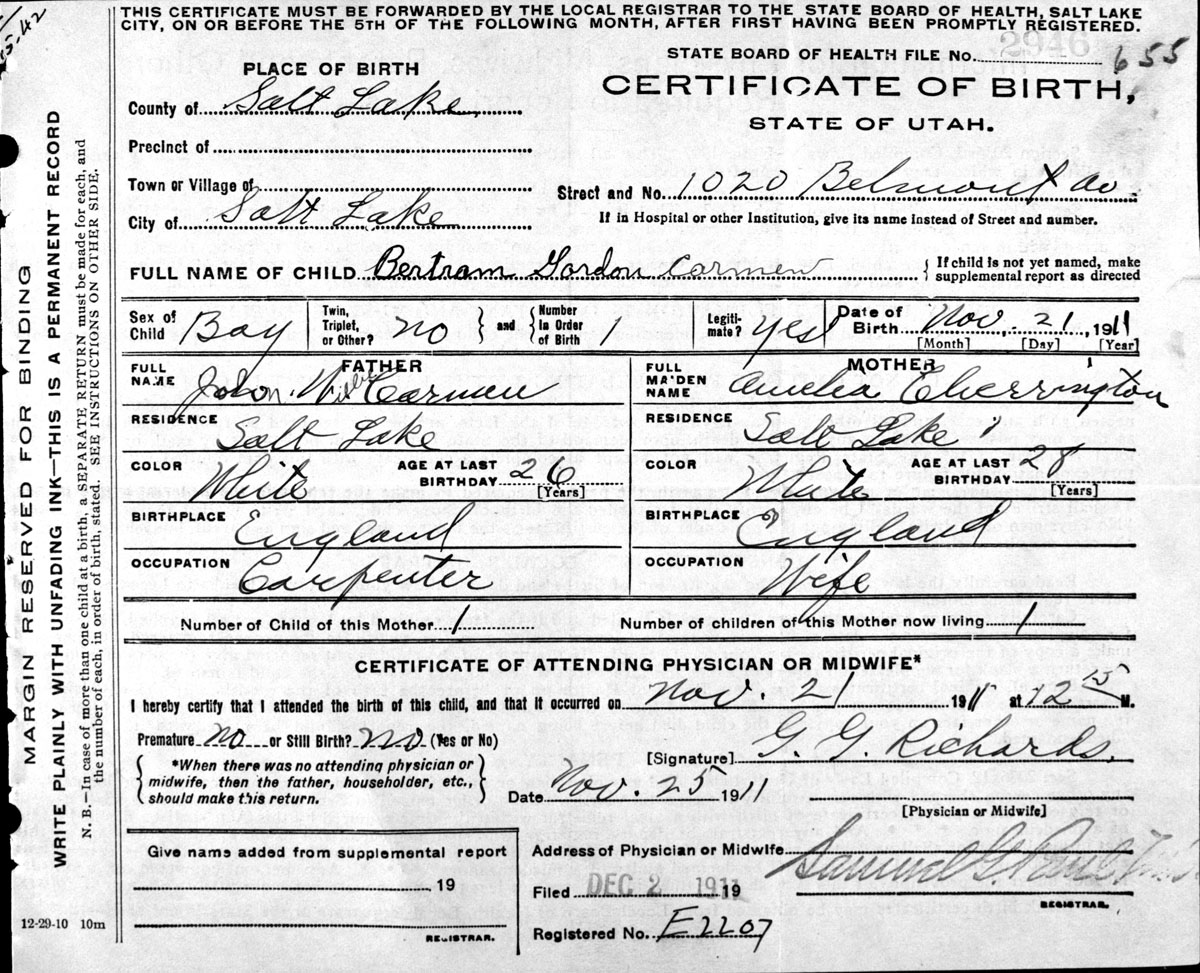 THIS CERTIFICATE MUST BE FORWARDED BY THE LOCAL REGISTRAR TO THE STATE BOARD OF HEALTH, SALT LAKE
CITY, ON OR BEFORE THE 5TH OF THE FOLLOWING MONTH, AFTER FIRST HAVING BEEN PROMPTLY REGISTERED.
2946
STATE BOARD OF HEALTH FILE No. 655
PLACE OF BIRTH
CERTIFICATE OF BIRTH,
STATE OF UTAH.
County of Salt Lake
Precinct of
Town or Village of
Street and No. 1020 Belmont Av.
City of Salt Lake
If in Hospital or other Institution, give its name instead of Street and number.
FULL NAME OF CHILD Bertram Gordon Carmen
If child is not yet named, make
supplemental report as directed
Sex of Child Boy
Twin, Triplet, or Other? no
and
Number In Order of Birth 1
Legitimate? Yes
Date of Birth Nov. 21, 1911
[Month] [Day] [Year]
FATHER
FULL NAME John Carmen
RESIDENCE Salt Lake
COLOR White
AGE AT LAST BIRTHDAY 26
[Years]
BIRTHPLACE England
OCCUPATION Carpenter
MOTHER
FULL MAIDEN NAME Amelia Cherrington
RESIDENCE Salt Lake
COLOR White
AGE AT LAST BIRTHDAY 28
[Years]
BIRTHPLACE England
OCCUPATION Wife
Number of Child of this Mother 1
Number of children of this Mother now living 1
CERTIFICATE OF ATTENDING PHYSICIAN OR MIDWIFE*
I hereby certify that I attended the birth of this child, and that it occurred on Nov. 21 1911 at 12 15 M.
Premature no or Still Birth? no (Yes or No)
*When there was no attending physician or
midwife, then the father, householder, etc.,
should make this return.
[Signature] G. G. Richards,
Date Nov. 25 1911
[Physician or Midwife]
Give name added from supplemental report
19
REGISTRAR.
Address of Physician or Midwife
Filed DEC 2 1911 19
Samuel G. Paul
REGISTRAR.
Registered No. E2207
12-29-10 10m
MARGIN RESERVED FOR BINDING
WRITE PLAINLY WITH UNFADING INK—THIS IS A PERMANENT RECORD
N. B.—In case of more than one child at a birth, a SEPARATE RETURN must be made for each, and
the number of each, in order of birth, stated. SEE INSTRUCTIONS ON OTHER SIDE.